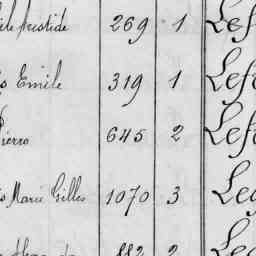 269 1 Lef
Emile 319 1 Lef
Pierre 645 2 Lef
Marie Gilles 1070 3 Leg
882 2 Leg